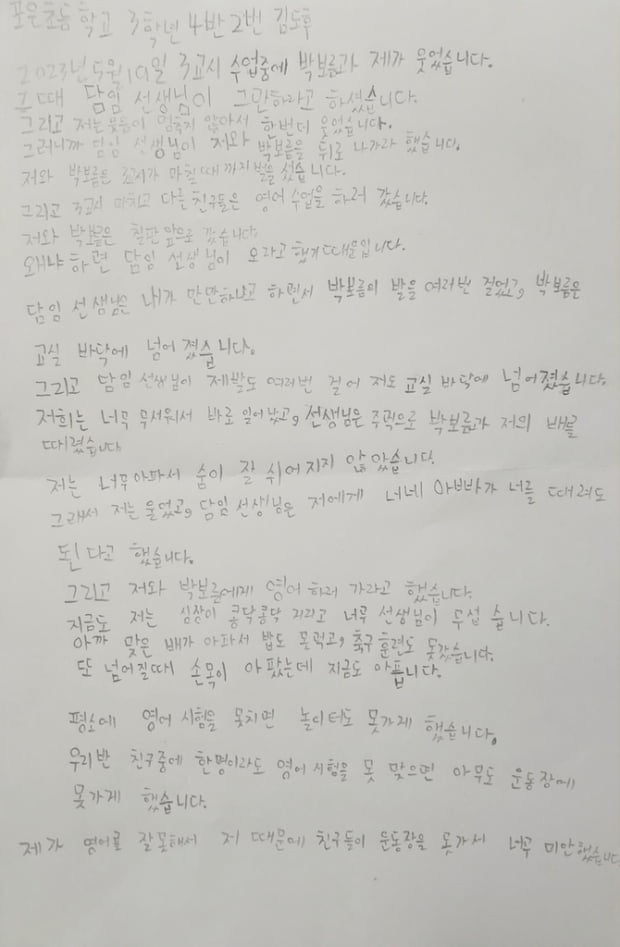 포은초등학교 3학년 4반 2번 김도후
2023년 5월 19일 3교시 수업중에 박보름과 제가 웃었습니다.
그때 담임 선생님이 그만하라고 하셨습니다.
그리고 저는 웃음이 멈추지 않아서 한번더 웃었습니다.
그러니까 담임 선생님이 저와 박보름을 뒤로 나가라 했습니다.
저와 박보름은 3교시가 마칠때까지 벌을 섰습니다.
그리고 3교시 마치고 다른 친구들은 영어 수업을 하러 갔습니다.
저와 박보름은 칠판앞으로 갔습니다.
왜냐하면 담임 선생님이 오라고 했기 때문입니다.
담임 선생님은 내가 만만하냐고 하면서 박보름의 발을 여러번 걸었고, 박보름은
교실 바닥에 넘어졌습니다.
그리고 담임 선생님이 제발도 여러번 걸어 저도 교실 바닥에 넘어졌습니다.
저희는 너무 무서워서 바로 일어났고, 선생님은 주먹으로 박보름과 저의 배를
때렸습니다
저는 너무아파서 숨이 잘 쉬어지지 않았습니다.
그래서 저는 울었고, 담임 선생님은 저에게 너네 아빠가 너를 때려도
된다고 했습니다.
그리고 저와 박보름에게 영어 하러 가라고 했습니다.
지금도 저는 심장이 콩닥콩닥 거리고 너무 선생님이 무섭습니다.
아까 맞은 배가 아파서 밥도 못먹고, 축구 훈련도 못갔습니다.
또 넘어질때 손목이 아팠는데 지금도 아픕니다.
평소에 영어 시험을 못치면 놀이터도 못가게 했습니다.
우리반 친구중에 한명이라도 영어 시험을 못 맞으면 아무도 운동장에
못가게 했습니다.
제가 영어를 잘못해서 저 때문에 친구들이 운동장을 못가서 너무 미안했습니다